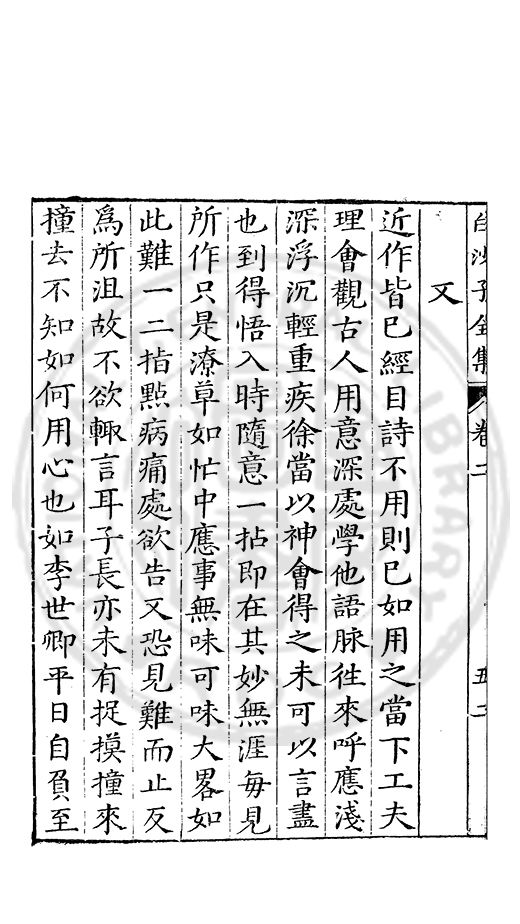 白沙子全集 卷二 五二
又
近作皆已經目詩不用則已如用之當下工夫
理會觀古人用意深處學他語脉徃來呼應淺
深浮沉輕重疾徐當以神會得之未可以言盡
也到得悟入時隨意一拈即在其妙無涯毎見
所作只是潦草如忙中應事無味可味大畧如
此難一二指點病痛處欲告又恐見難而止反
爲所沮故不欲輙言耳子長亦未有捉摸撞來
撞去不知如何用心也如李世卿平日自負至